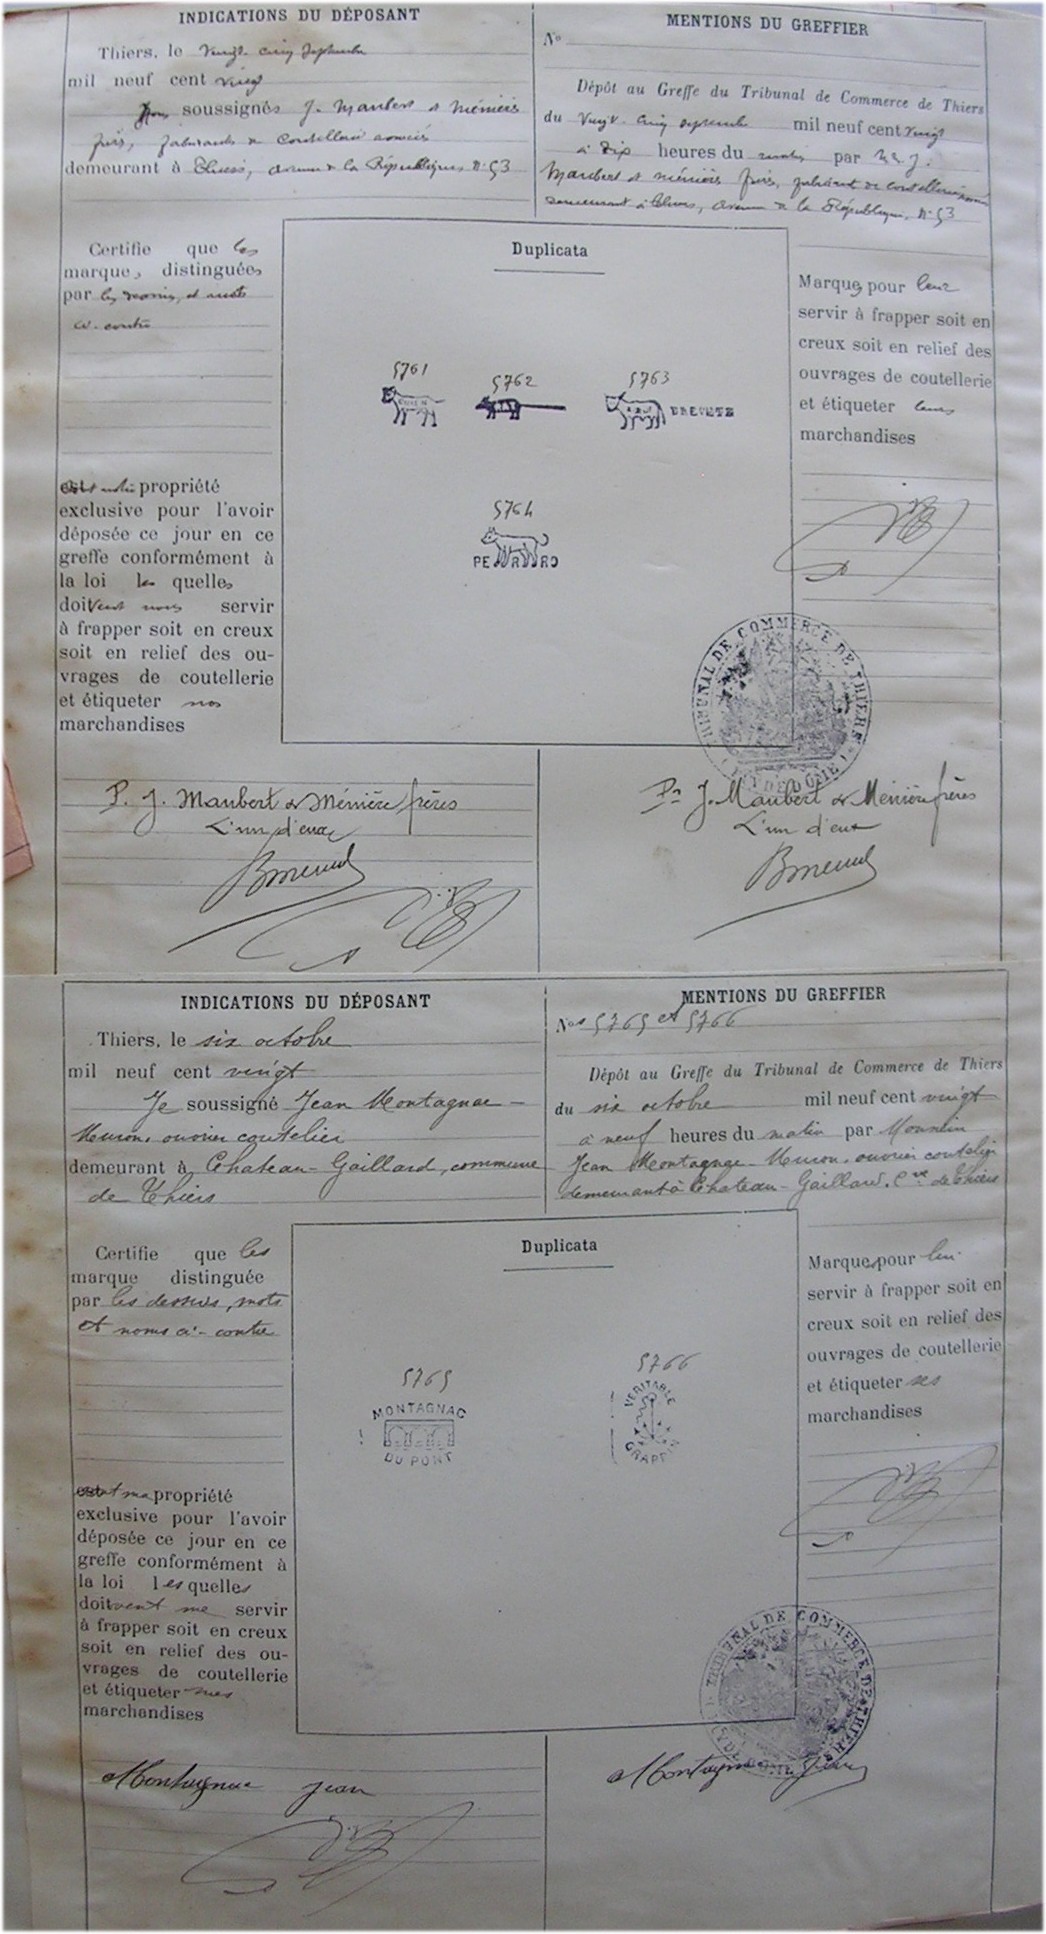 INDICATIONS DU DÉPOSANT
Thiers, le vingt-cinq septembre
mil neuf cent vingt
Nous soussignés J. Maubert & Ménière
frères, fabricants de coutellerie associés
demeurant à Thiers, avenue de la République, N° 53
Certifie que les
marques distinguées
par les dessins, et mots
ci-contre
sont notre propriété
exclusive pour l'avoir
déposée ce jour en ce
greffe conformément à
la loi les quelles
doivent nous servir
à frapper soit en creux
soit en relief des ou-
vrages de coutellerie
et étiqueter nos
marchandises
MENTIONS DU GREFFIER
N°
Dépôt au Greffe du Tribunal de Commerce de Thiers
du vingt-cinq septembre mil neuf cent vingt
à dix heures du matin par J.
Maubert & Ménière frères, fabricants de coutellerie
demeurant à Thiers, avenue de la République, N° 53
Duplicata
5761
5762
5763
BREVETE
5764
PERRO
Marques pour leur
servir à frapper soit en
creux soit en relief des
ouvrages de coutellerie
et étiqueter leurs
marchandises
TRIBUNAL DE COMMERCE DE THIERS
(PUY DE DOME)
P. J. Maubert & Ménière frères
L'un d'eux
Pr J. Maubert & Ménière frères
L'un d'eux
INDICATIONS DU DÉPOSANT
Thiers, le six octobre
mil neuf cent vingt
Je soussigné Jean Montagnac-
ouvrier coutelier
demeurant à Chateau-Gaillard, commune
de Thiers
Certifie que les
marque distinguée
par les dessins, mots
et noms ci-contre
sont ma propriété
exclusive pour l'avoir
déposée ce jour en ce
greffe conformément à
la loi les quelles
doivent me servir
à frapper soit en creux
soit en relief des ou-
vrages de coutellerie
et étiqueter mes
marchandises
MENTIONS DU GREFFIER
Nos 5765 et 5766
Dépôt au Greffe du Tribunal de Commerce de Thiers
du six octobre mil neuf cent vingt
à neuf heures du matin par
Jean Montagnac- ouvrier coutelier
demeurant à Chateau-Gaillard, Cne de Thiers
Duplicata
5765
MONTAGNAC
DU PONT
5766
VERITABLE
GRAPPIN
Marques pour lui
servir à frapper soit en
creux soit en relief des
ouvrages de coutellerie
et étiqueter ses
marchandises
TRIBUNAL DE COMMERCE DE THIERS
(PUY DE DOME)
Montagnac Jean
Montagnac Jean